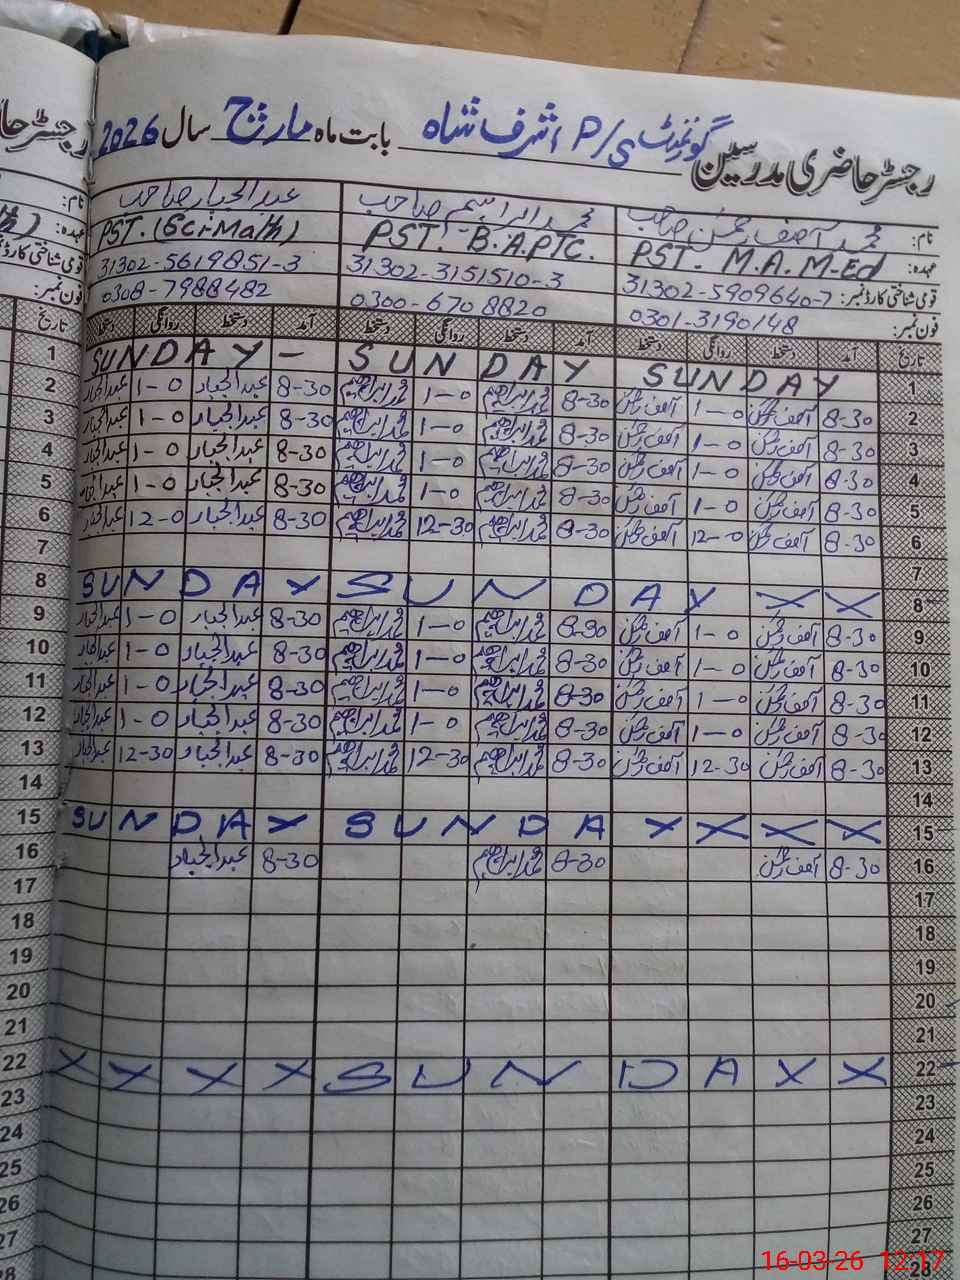 رجسٹر حاضری مدرسین گورنمنٹ P/S اشرف شاہ بابت ماہ مارچ سال 2026
نام: محمد آصف رحمٰن صاحب محمد ابراہیم صاحب عبدالجبار صاحب
عہدہ: PST. M.A. M-Ed PST. B.A.PTC. PST. (Sci-Math)
قومی شناختی کارڈ نمبر: 31302-5909640-7 31302-3151510-3 31302-5619851-3
فون نمبر: 0301-3190148 0300-6708820 0308-7988482
تاریخ آمد دستخط روانگی دستخط آمد دستخط روانگی دستخط آمد دستخط روانگی دستخط تاریخ
1 SUNDAY - SUNDAY SUNDAY 1
2 8-30 آصف رحمٰن 1-0 آصف رحمٰن 8-30 محمد ابراہیم 1-0 محمد ابراہیم 8-30 عبدالجبار 1-0 عبدالجبار 2
3 8-30 آصف رحمٰن 1-0 آصف رحمٰن 8-30 محمد ابراہیم 1-0 محمد ابراہیم 8-30 عبدالجبار 1-0 عبدالجبار 3
4 8-30 آصف رحمٰن 1-0 آصف رحمٰن 8-30 محمد ابراہیم 1-0 محمد ابراہیم 8-30 عبدالجبار 1-0 عبدالجبار 4
5 8-30 آصف رحمٰن 1-0 آصف رحمٰن 8-30 محمد ابراہیم 1-0 محمد ابراہیم 8-30 عبدالجبار 1-0 عبدالجبار 5
6 8-30 آصف رحمٰن 12-0 آصف رحمٰن 8-30 محمد ابراہیم 12-30 محمد ابراہیم 8-30 عبدالجبار 12-0 عبدالجبار 6
7 7
8 SUNDAY SUNDAY X X 8
9 8-30 آصف رحمٰن 1-0 آصف رحمٰن 8-30 محمد ابراہیم 1-0 محمد ابراہیم 8-30 عبدالجبار 1-0 عبدالجبار 9
10 8-30 آصف رحمٰن 1-0 آصف رحمٰن 8-30 محمد ابراہیم 1-0 محمد ابراہیم 8-30 عبدالجبار 1-0 عبدالجبار 10
11 8-30 آصف رحمٰن 1-0 آصف رحمٰن 8-30 محمد ابراہیم 1-0 محمد ابراہیم 8-30 عبدالجبار 1-0 عبدالجبار 11
12 8-30 آصف رحمٰن 1-0 آصف رحمٰن 8-30 محمد ابراہیم 1-0 محمد ابراہیم 8-30 عبدالجبار 1-0 عبدالجبار 12
13 8-30 آصف رحمٰن 12-30 آصف رحمٰن 8-30 محمد ابراہیم 12-30 محمد ابراہیم 8-30 عبدالجبار 12-30 عبدالجبار 13
14 14
15 SUNDAY SUNDAY X X X 15
16 8-30 آصف رحمٰن 8-30 محمد ابراہیم 8-30 عبدالجبار 16
17 17
18 18
19 19
20 20
21 21
22 X X X X SUNDAY X X 22
23 23
24 24
25 25
26 26
27 27
28 28
16-03-26 12:17